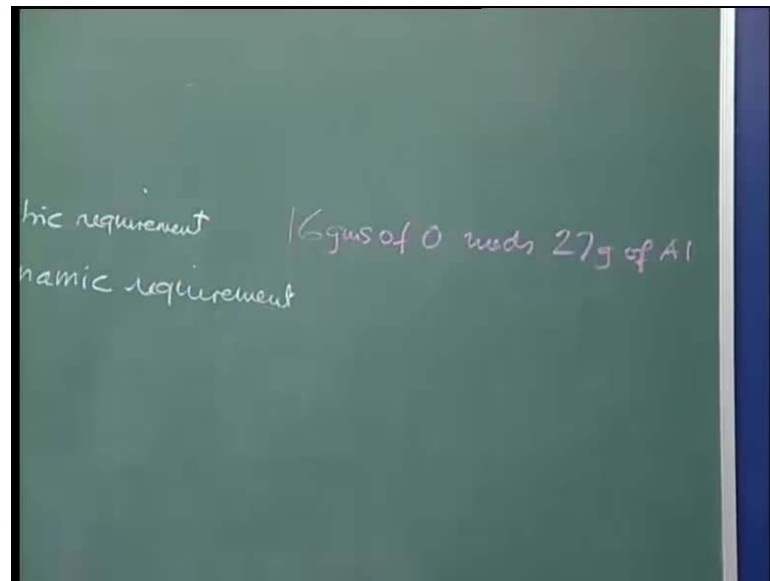 hic requirement
16 gms of O needs 27g of Al
namic requirement